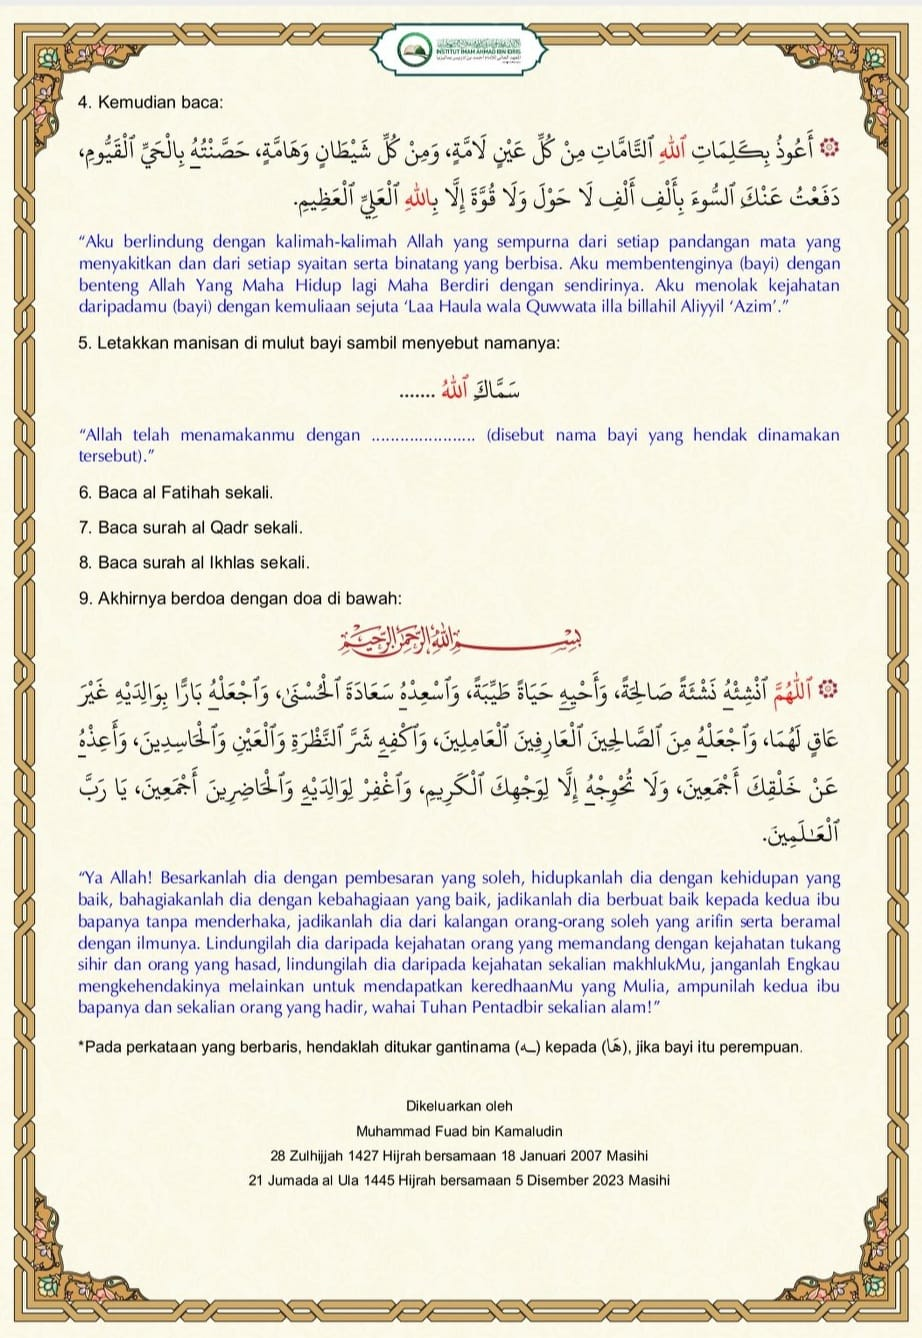 INSTITUT IMAM AHMAD BIN IDRIS
4. Kemudian baca:
أَعُوذُ بِكَلِمَاتِ ٱللهِ ٱلتَّامَّاتِ مِنْ كُلِّ عَيْنٍ لَامَّةٍ، وَمِنْ كُلِّ شَيْطَانٍ وَهَامَّةٍ، حَصَّنْتُهُ بِالْحَيِّ ٱلْقَيُّومِ،
دَفَعْتُ عَنْكَ ٱلسُّوءَ بِأَلْفِ أَلْفِ لَا حَوْلَ وَلَا قُوَّةَ إِلَّا بِاللهِ ٱلْعَلِيِّ ٱلْعَظِيمِ.
“Aku berlindung dengan kalimah-kalimah Allah yang sempurna dari setiap pandangan mata yang
menyakitkan dan dari setiap syaitan serta binatang yang berbisa. Aku membentenginya (bayi) dengan
benteng Allah Yang Maha Hidup lagi Maha Berdiri dengan sendirinya. Aku menolak kejahatan
daripadamu (bayi) dengan kemuliaan sejuta ‘Laa Haula wala Quwwata illa billahil Aliyyil ‘Azim’.”
5. Letakkan manisan di mulut bayi sambil menyebut namanya:
سَمَّاكَ ٱللهُ .......
“Allah telah menamakanmu dengan ...................... (disebut nama bayi yang hendak dinamakan
tersebut).”
6. Baca al Fatihah sekali.
7. Baca surah al Qadr sekali.
8. Baca surah al Ikhlas sekali.
9. Akhirnya berdoa dengan doa di bawah:
بِسْمِ اللهِ الرَّحْمَٰنِ الرَّحِيمِ
ٱللَّهُمَّ ٱنْشِئْهُ نَشْئَةً صَالِحَةً، وَأَحْيِهِ حَيَاةً طَيِّبَةً، وَٱسْعِدْهُ سَعَادَةَ ٱلْحُسْنَىٰ، وَٱجْعَلْهُ بَارًّا بِوَالِدَيْهِ غَيْرَ
عَاقٍ لَهُمَا، وَٱجْعَلْهُ مِنَ ٱلصَّالِحِينَ ٱلْعَارِفِينَ ٱلْعَامِلِينَ، وَٱكْفِهِ شَرَّ ٱلنَّظْرَةِ وَٱلْعَيْنِ وَٱلْحَاسِدِينَ، وَأَعِذْهُ
عَنْ خَلْقِكَ أَجْمَعِينَ، وَلَا تُحْوِجْهُ إِلَّا لِوَجْهِكَ ٱلْكَرِيمِ، وَٱغْفِرْ لِوَالِدَيْهِ وَٱلْحَاضِرِينَ أَجْمَعِينَ، يَا رَبَّ
ٱلْعَـٰلَمِينَ.
“Ya Allah! Besarkanlah dia dengan pembesaran yang soleh, hidupkanlah dia dengan kehidupan yang
baik, bahagiakanlah dia dengan kebahagiaan yang baik, jadikanlah dia berbuat baik kepada kedua ibu
bapanya tanpa menderhaka, jadikanlah dia dari kalangan orang-orang soleh yang arifin serta beramal
dengan ilmunya. Lindungilah dia daripada kejahatan orang yang memandang dengan kejahatan tukang
sihir dan orang yang hasad, lindungilah dia daripada kejahatan sekalian makhlukMu, janganlah Engkau
mengkehendakinya melainkan untuk mendapatkan keredhaanMu yang Mulia, ampunilah kedua ibu
bapanya dan sekalian orang yang hadir, wahai Tuhan Pentadbir sekalian alam!”
*Pada perkataan yang berbaris, hendaklah ditukar gantinama (ـه) kepada (هَا), jika bayi itu perempuan.
Dikeluarkan oleh
Muhammad Fuad bin Kamaludin
28 Zulhijjah 1427 Hijrah bersamaan 18 Januari 2007 Masihi
21 Jumada al Ula 1445 Hijrah bersamaan 5 Disember 2023 Masihi